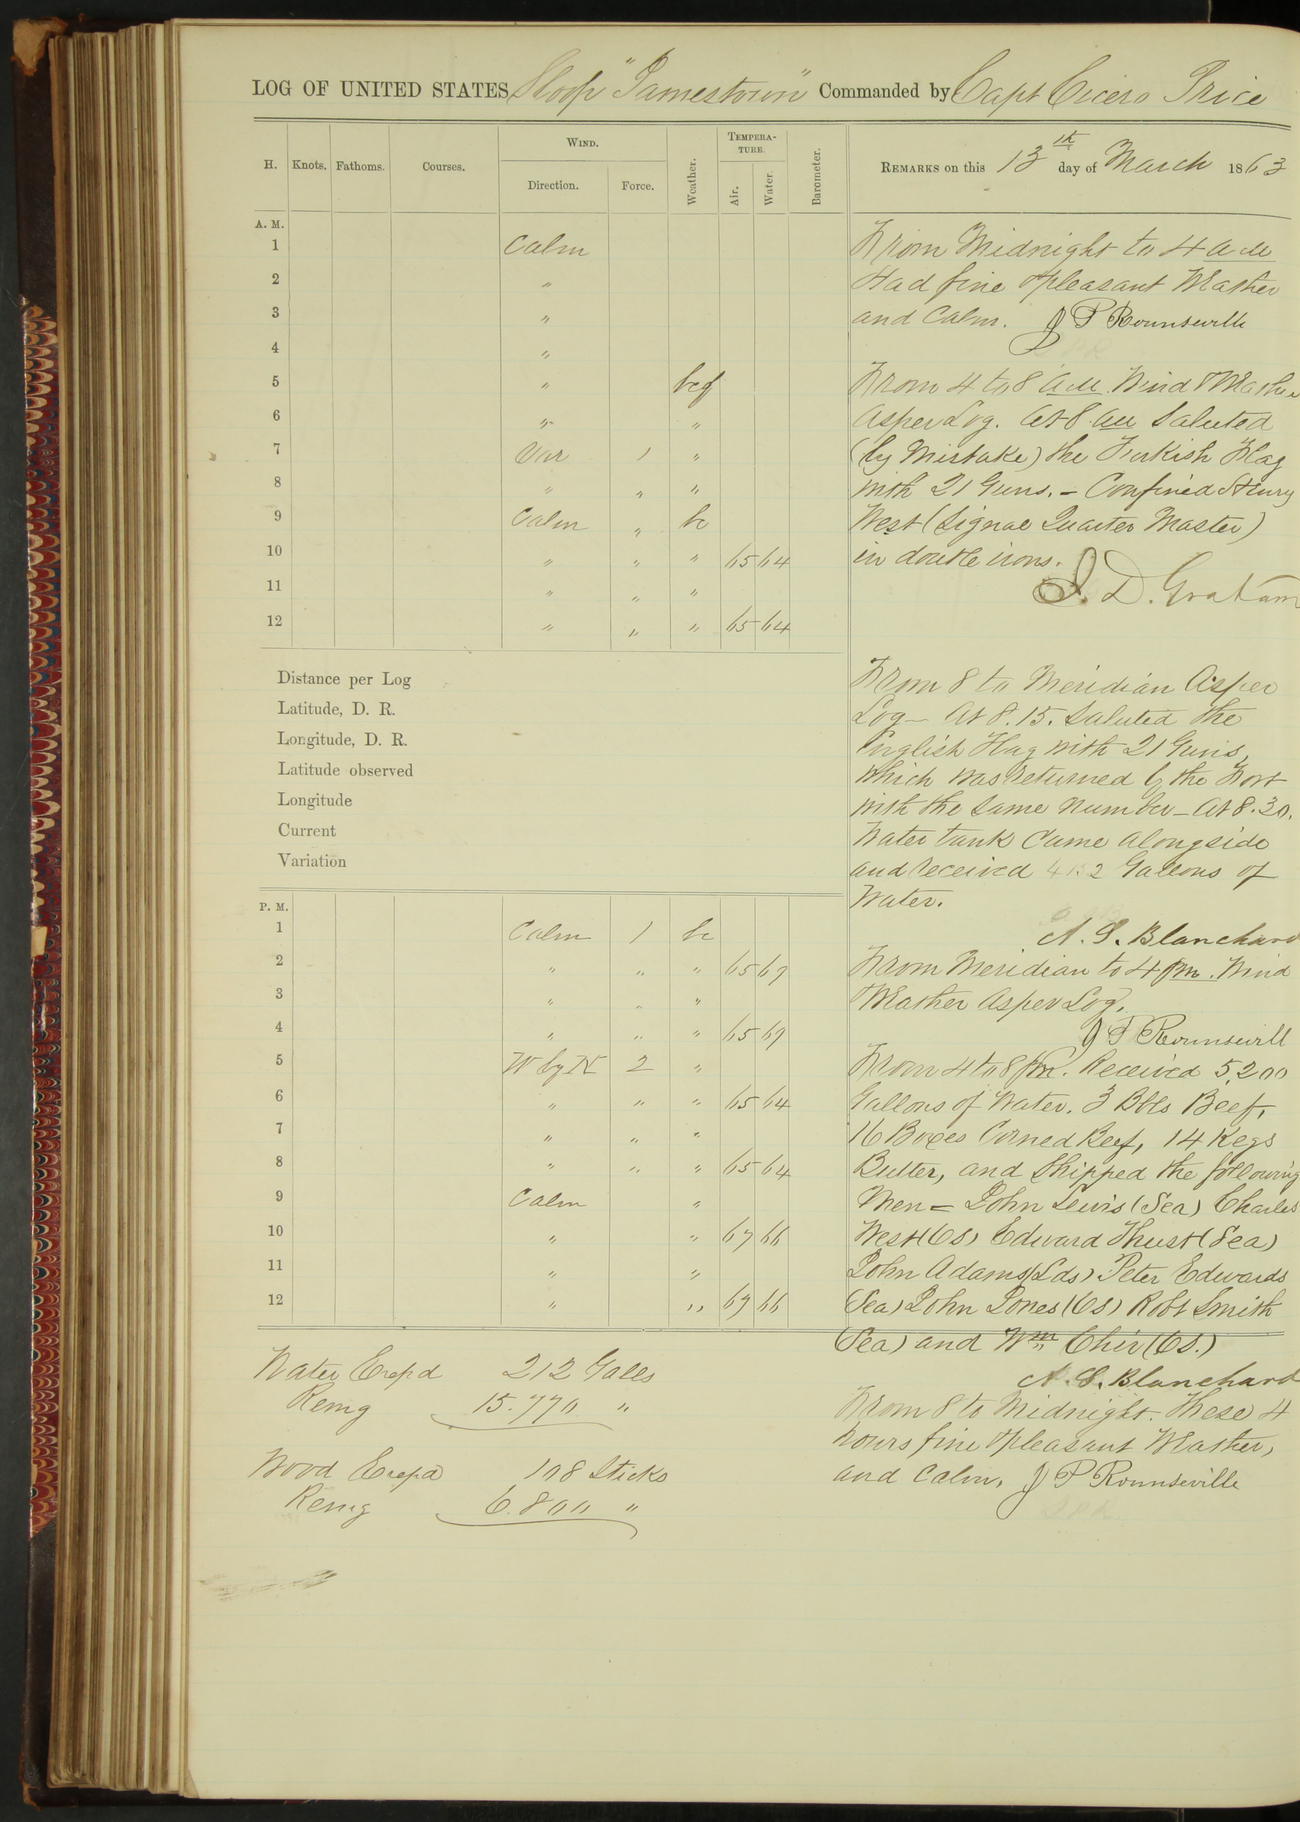 LOG OF UNITED STATES Sloop "Jamestown" Commanded by Capt Cicero Price
H. Knots. Fathoms. Courses. WIND. Direction. Force. Weather. TEMPERATURE. Air. Water. Barometer.
REMARKS on this 13th day of March 1863
A. M.
1 Calm
2 "
3 "
4 "
5 " bcf
6 " "
7 Var 1 "
8 " " "
9 Calm " bc
10 " " " 65 64
11 " " "
12 " " " 65 64
Distance per Log
Latitude, D. R.
Longitude, D. R.
Latitude observed
Longitude
Current
Variation
P. M.
1 Calm 1 bc
2 " " " 65 69
3 " " "
4 " " " 65 69
5 W by N 2 "
6 " " " 65 64
7 " " "
8 " " " 65 64
9 Calm "
10 " " 67 66
11 " "
12 " " 67 66
Water Expd 212 Galls
Remg 15.770 "
Wood Expd 108 Sticks
Remg 6.800 "
From Midnight to 4 am
Had fine & pleasant Weather
and Calm. J P Rounseville
From 4 to 8 am. Wind & Weather
As per Log. At 8 am Saluted
(by Mistake) the Turkish Flag
with 21 Guns. – Confined Henry
West (Signal Quarter Master)
in double irons.
J. D. Graham
From 8 to Meridian As per
Log – At 8.15. Saluted the
English Flag with 21 Guns,
which was returned by the Fort
with the same number – At 8.30.
Water tank Came alongside
and received Gallons of
Water.
A. S. Blanchard
From Meridian to 4 pm. Wind
& Weather As per Log.
J P Rounsevill
From 4 to 8 Pm. Received 5,200
Gallons of Water. 3 Bbls Beef,
16 Boxes Corned Beef, 14 Kegs
Butter, and Shipped the following
Men = John Lewis (Sea) Charles
West (OS) Edward Thust (Sea)
John Adams (Lds) Peter Edwards
(Sea) John Jones (OS) Robt Smith
(Sea) and Wm Chir (OS.)
A. S. Blanchard
From 8 to Midnight. These 4
hours fine & pleasant Weather,
and Calm. J P Rounseville